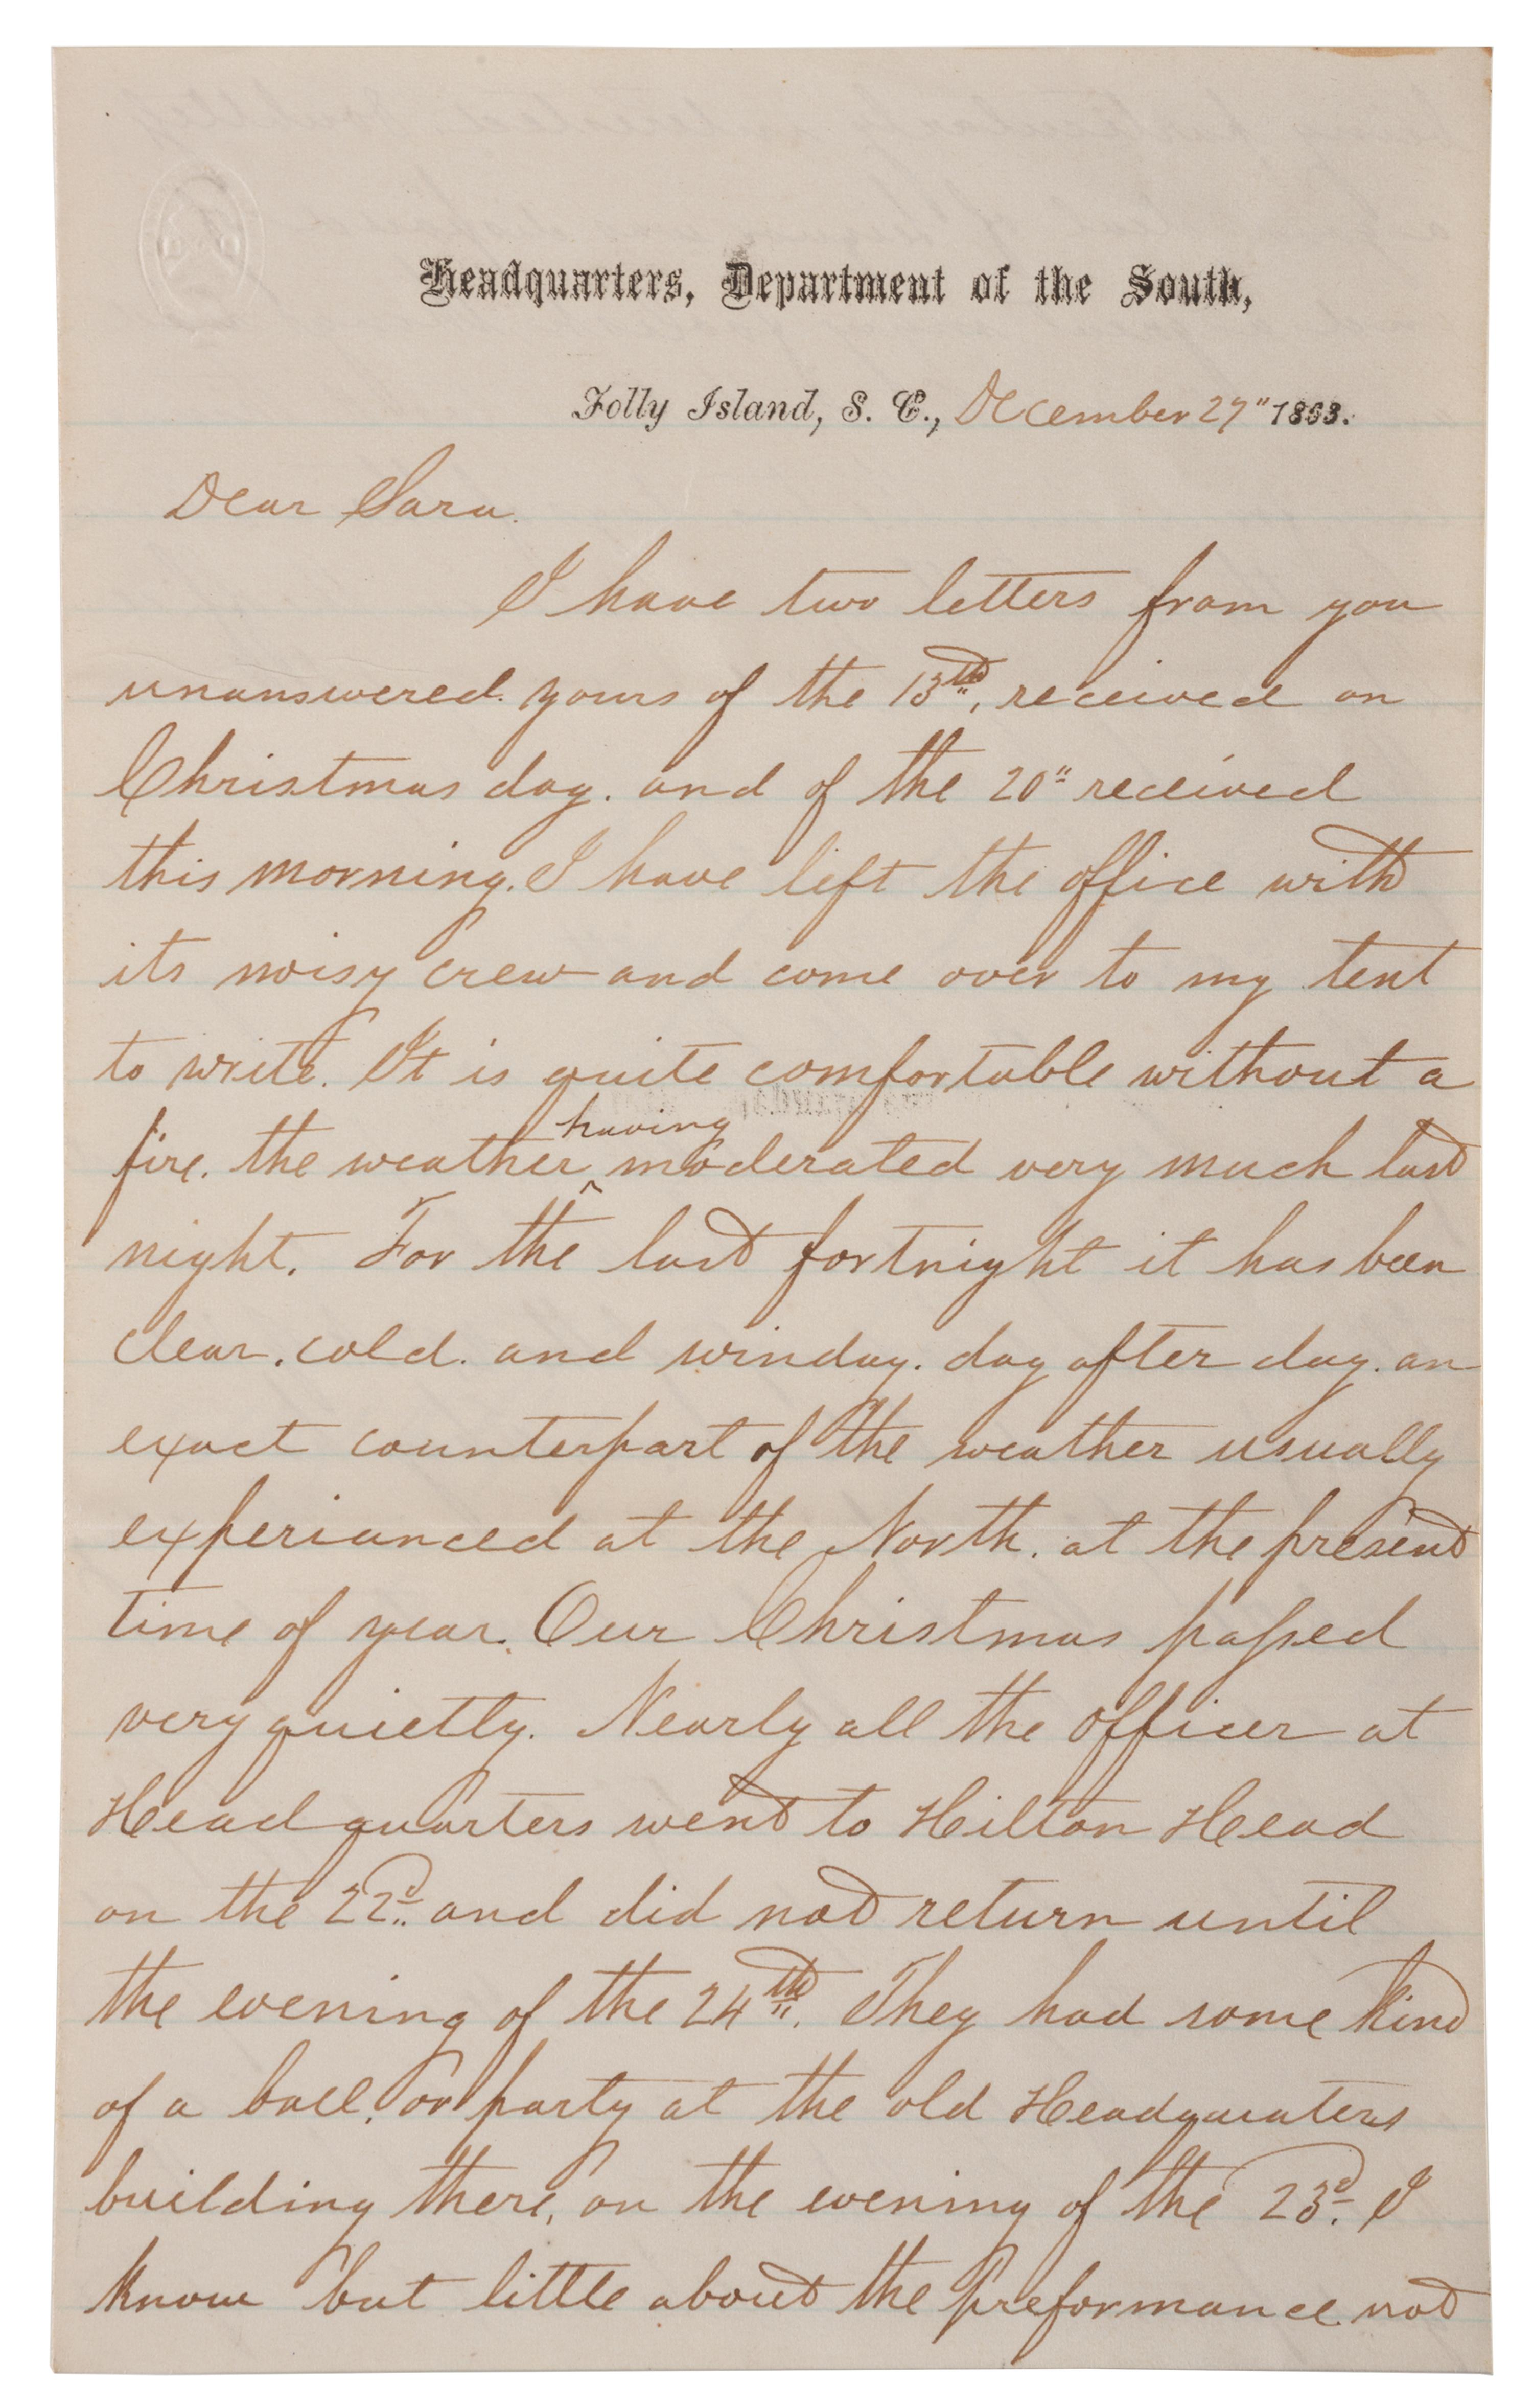 Headquarters, Department of the South,
Folly Island, S. C., December 27" 1863.
Dear Sara.
I have two letters from you
unanswered. yours of the 13th, received on
Christmas day. and of the 20" received
this morning. I have left the office with
its noisy crew and come over to my tent
to write. It is quite comfortable without a
fire. the weather ^having moderated very much last
night. For the last fortnight it has been
clear. cold. and winday. day after day. an
exact counterpart of the weather usually
experianced at the North. at the present
time of year. Our Christmas passed
very quietly. Nearly all the officer at
Headquarters went to Hilton Head
on the 22d. and did not return until
the evening of the 24th. They had some kind
of a ball. or party at the old Headquaters
building there, on the evening of the 23d. I
know but little about the preformance. not